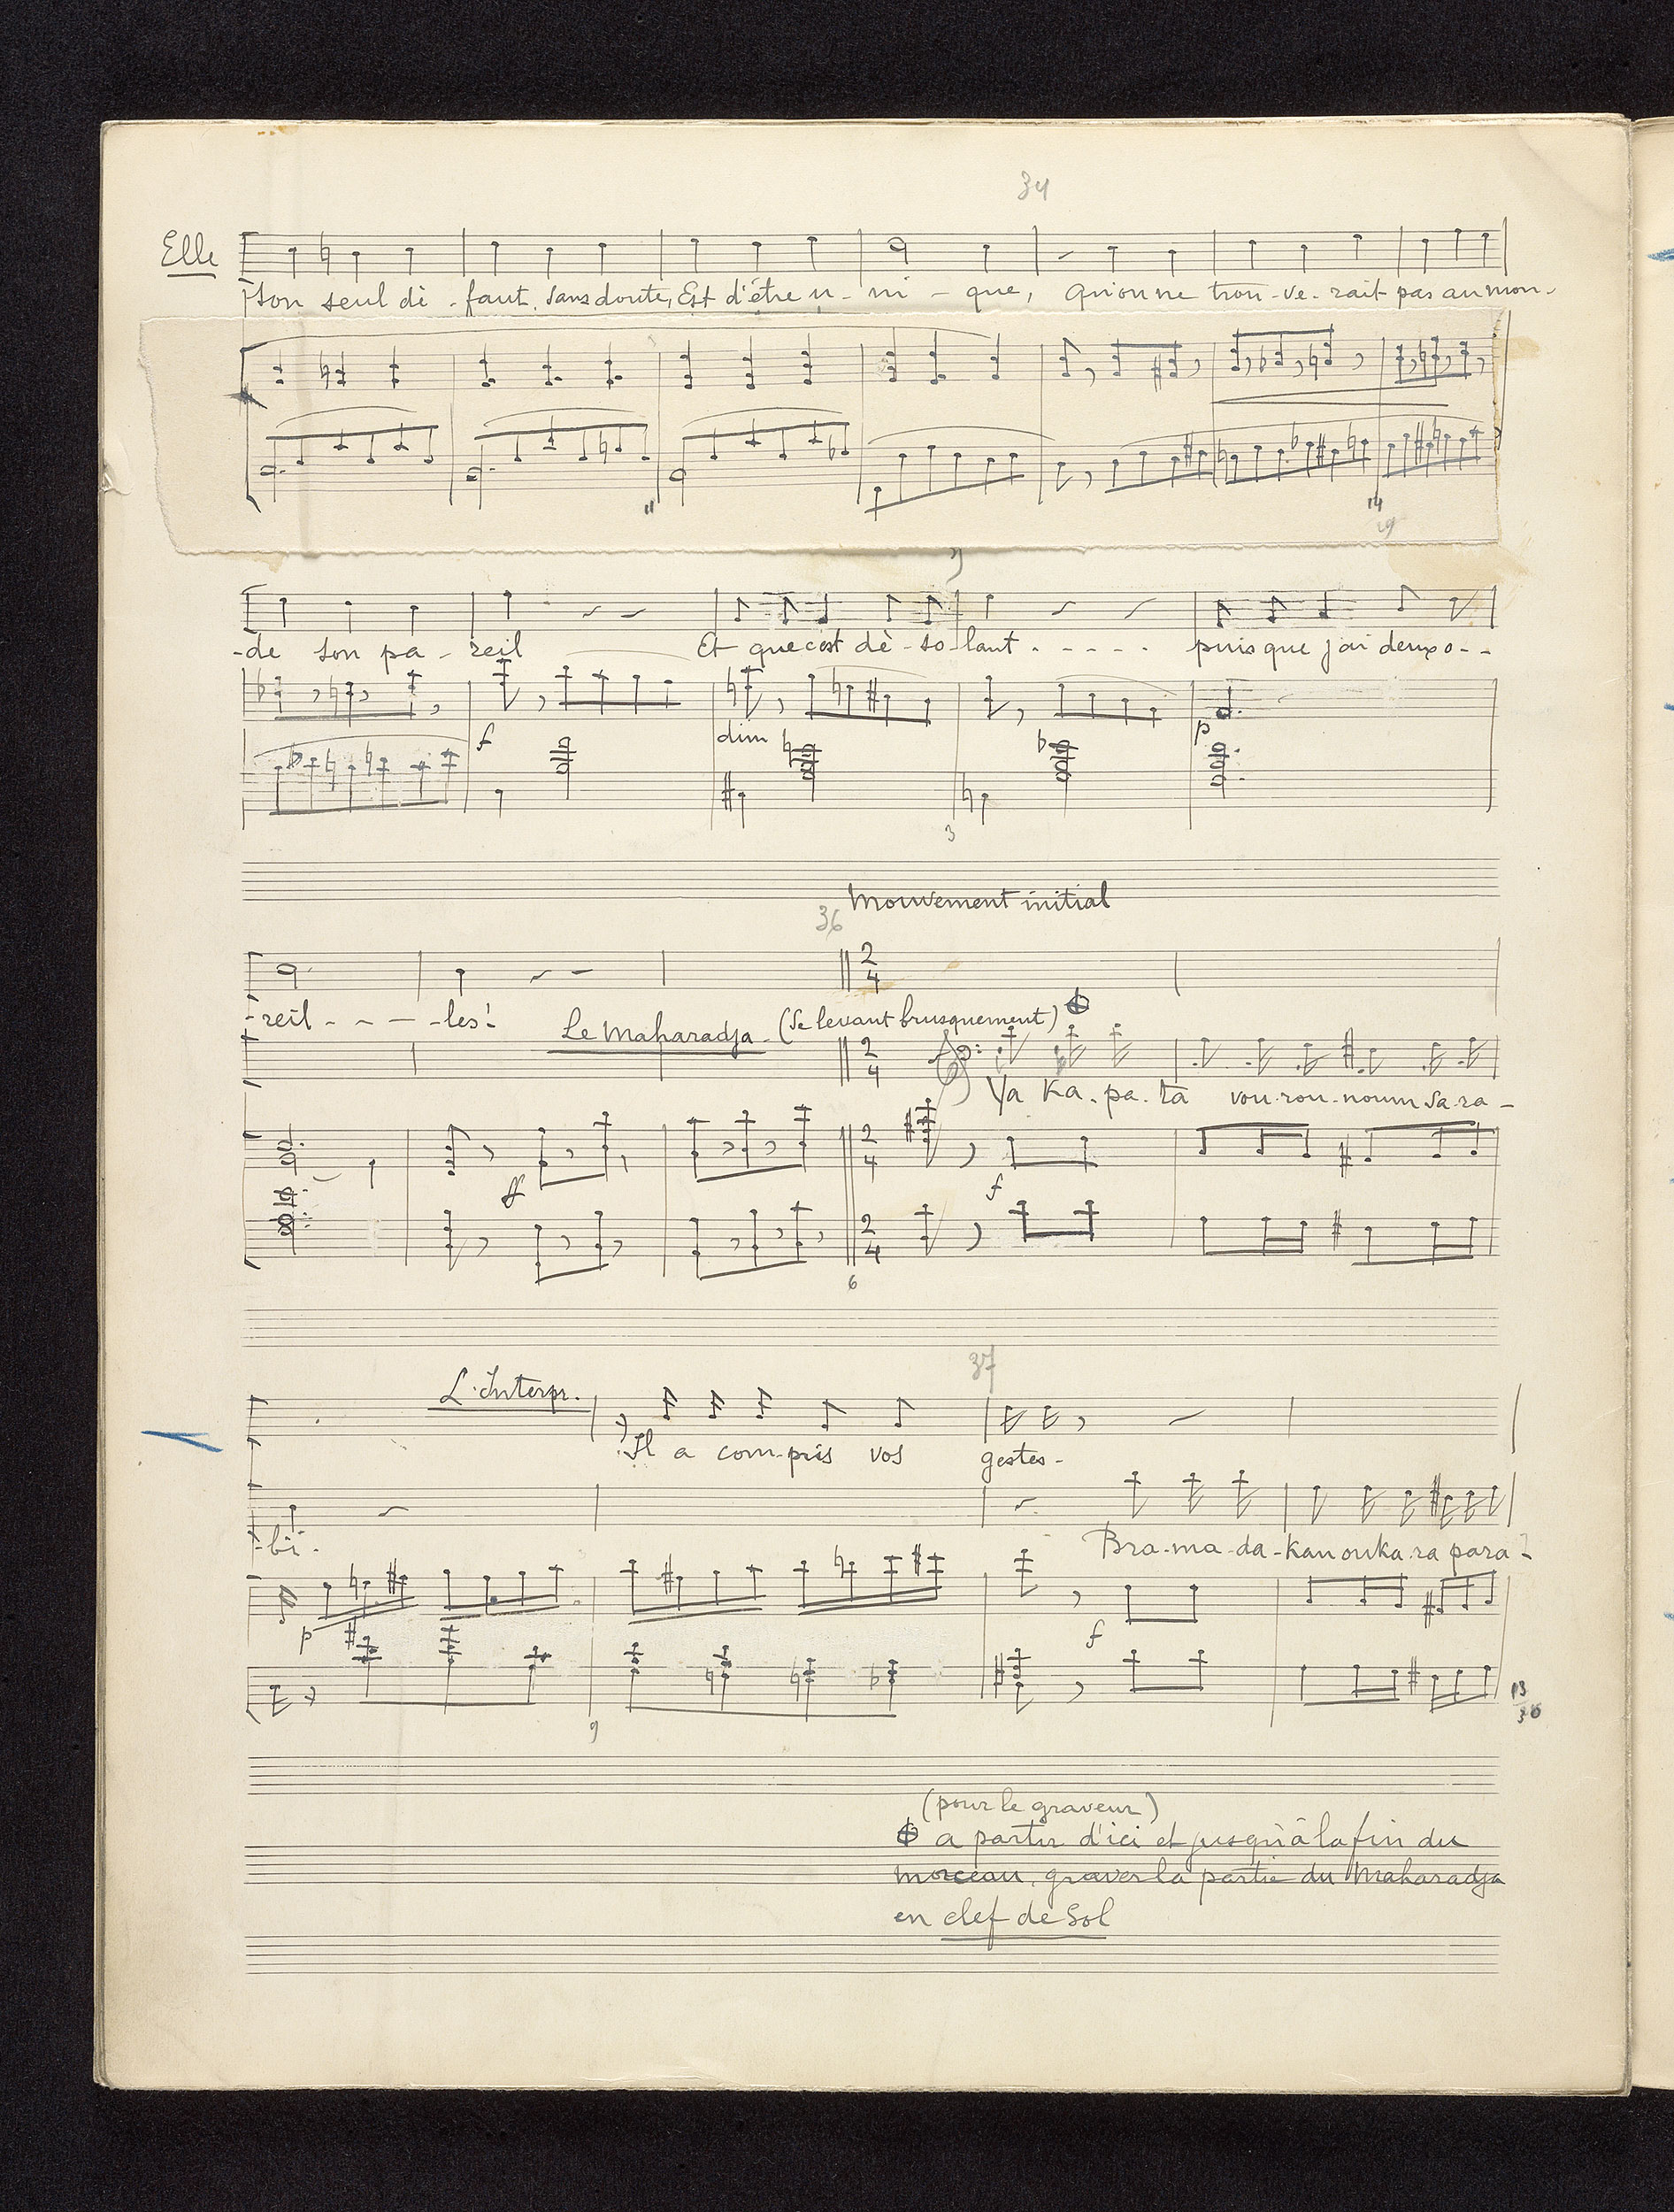 34
Elle
Son seul dè - faut, sans doute, Est d'être u - ni - que, qu'on ne trou - ve - rait pas au mon -
11
14
19
- de son pa - reil Et que c'est dè - so - lant . - - - - . puis que j'ai deux o - -
f dim p
3
Mouvement initial
36
2 4
- reil - - - - les! Le Maharadja - (Se levant brusquement)
2 4
Ya Ka - pa - ta vou - rou - noum sa - ra -
2 4
ff f
2 4
6
37
L'Interpr.
Il a com - pris vos gestes -
- bi - Bra - ma - da - kan ou ka - ra para -
p f
13
36
9
(pour le graveur)
a partir d'ici et jusqu'à la fin du
morceau, graver la partie du Maharadja
en clef de Sol